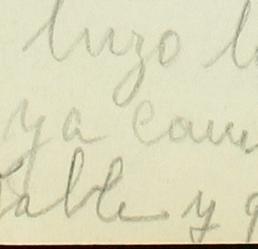 hizo l
ya cam
table y q